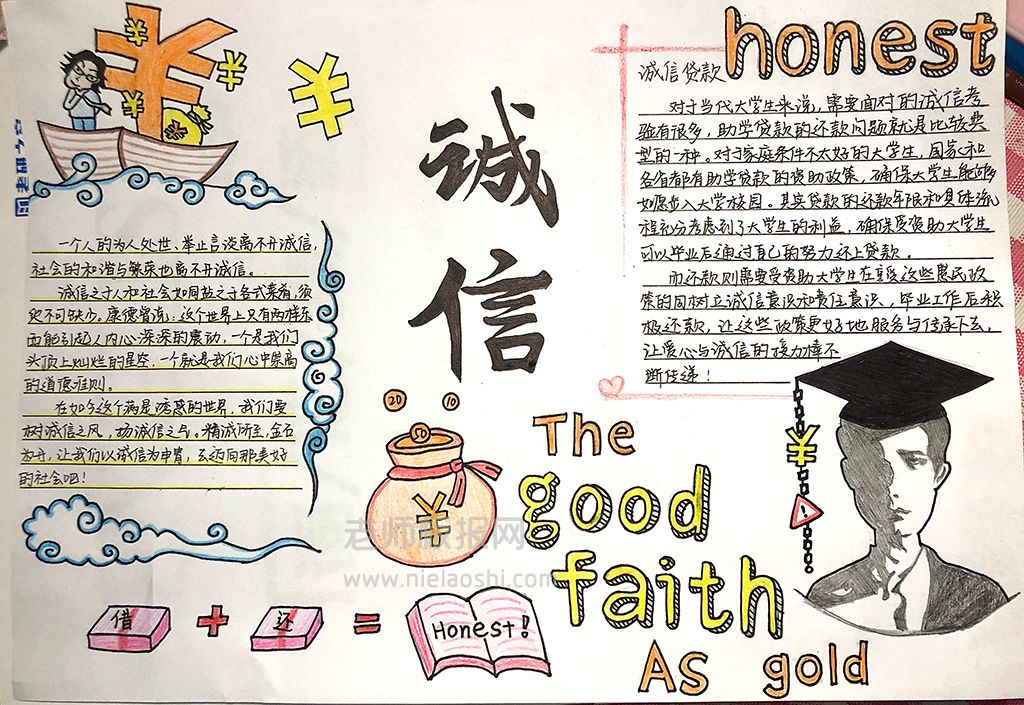 honest
诚信贷款
对于当代大学生来说，需要面对的诚信考
验有很多，助学贷款的还款问题就是比较典
型的一种。对于家庭条件不太好的大学生，国家和
各省都有助学贷款的资助政策，确保大学生能够
如愿步入大学校园。其实贷款的还款年限和具体流
程充分考虑到了大学生的利益，确保受资助大学生
可以毕业后通过自己的努力还上贷款。
而还款则需要受资助大学生在享受这些惠民政
策的同树立诚信意识和责任意识，毕业工作后积
极还款，让这些政策更好地服务与传承下去，
让爱心与诚信的接力棒不
断传递！
诚
信
一个人的为人处世、举止言谈离不开诚信，
社会的和谐与繁荣也离不开诚信。
诚信之于人和社会如同盐之于各式菜肴，须
臾不可缺少。康德曾说：这个世界上只有两样东
西能引起人内心深深的震动，一个是我们
头顶上灿烂的星空，一个就是我们心中崇高
的道德准则。
在如今这个满是诱惑的世界，我们要
树诚信之风，扬诚信之气。精诚所至，金石
为开，让我们以诚信为甲胄，去迈向那美好
的社会吧！
20
10
50
The
good
faith
As gold
借 + 还 = Honest!
老师板报网
www.nielaoshi.com